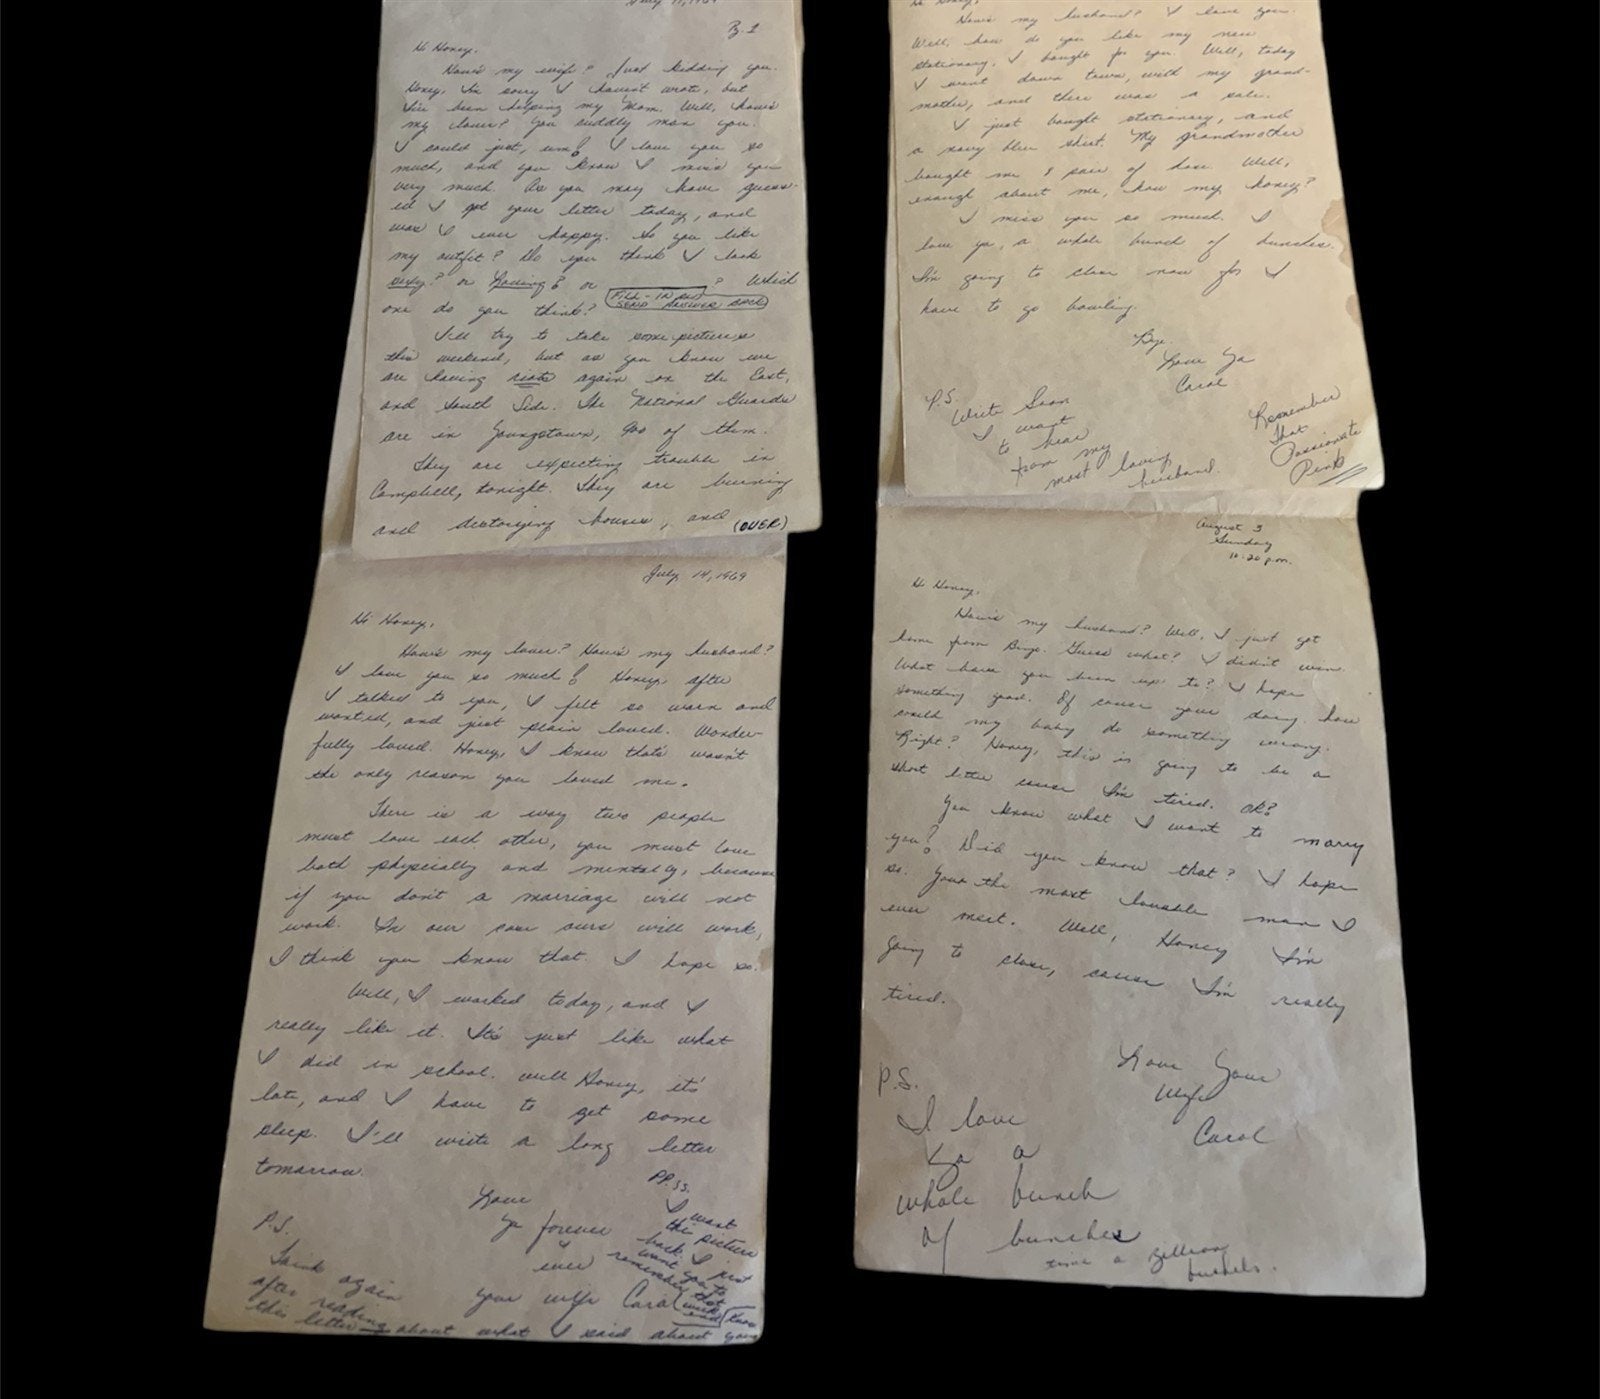 Pg. 1
Hi Honey,
How's my wife? Just kidding you.
Honey, I'm sorry I haven't wrote, but
I've been helping my Mom. Well, how's
my lover? You cuddly man you.
I could just, um! I love you so
much, and you know I miss you
very much. As you may have guess-
ed I got your letter today, and
was I ever happy. So you like
my outfit? Do you think I look
sexy? or Loving? or ? Which
FILL-IN AND
SEND ANSWER BACK
one do you think?
I'll try to take some pictures
this weekend, but as you know we
are having riots again on the East,
and South Side. The National Guards
are in Youngstown, 900 of them.
They are expecting trouble in
Campbell, tonight. They are burning
and destorying houses, and (OVER)
July 14, 1969
Hi Honey,
How's my lover? How's my husband?
I love you so much! Honey, after
I talked to you, I felt so warn and
wanted, and just plain loved. Wonder-
fully loved. Honey, I know that's wasn't
the only reason you loved me.
There is a way two people
must love each other, you must love
both physically and mentally, because
if you don't a marriage will not
work. In our case ours will work,
I think you know that. I hope so.
Well, I worked today, and I
really like it. It's just like what
I did in school. Well Honey, it's
late, and I have to get some
sleep. I'll write a long letter
tomorrow.
Love
Ya forever
ever
your wife Carol
P.S.
Think again
after reading
this letter about what I said about you
PP.SS.
I want
this picture
back. I just
want you to
remember that
Hi Honey,
How's my husband? I love you.
Well, how do you like my new
stationary, I bought for you. Well, today
I went down town, with my grand-
mother, and there was a sale.
I just bought stationary, and
a navy blue skirt. My grandmother
bought me 1 pair of hose. Well,
enough about me, how my honey?
I miss you so much. I
love ya, a whole bunch of bunches.
I'm going to close now for I
have to go bowling.
Bye.
Love Ya
Carol
P.S.
Write Soon
I want
to hear
from my
most loving
husband.
Remember
That
Passionate
Pink
August 3
Sunday
10:20 p.m.
Hi Honey,
How's my husband? Well, I just got
home from Bingo. Guess what? I didn't win.
What have you been up to? I hope
something good. Of cause your doing. how
could my baby do something wrong.
Right? Honey, this is going to be a
short letter cause I'm tired. OK?
You know what I want to marry
you! Did you know that? I hope
so. Your the most lovable man I
ever meet. Well, Honey I'm
going to close, cause I'm really
tired.
Love Your
Wife
Carol
P.S.
I love
Ya a
whole bunch
of bunches
time a zillion
bushels.